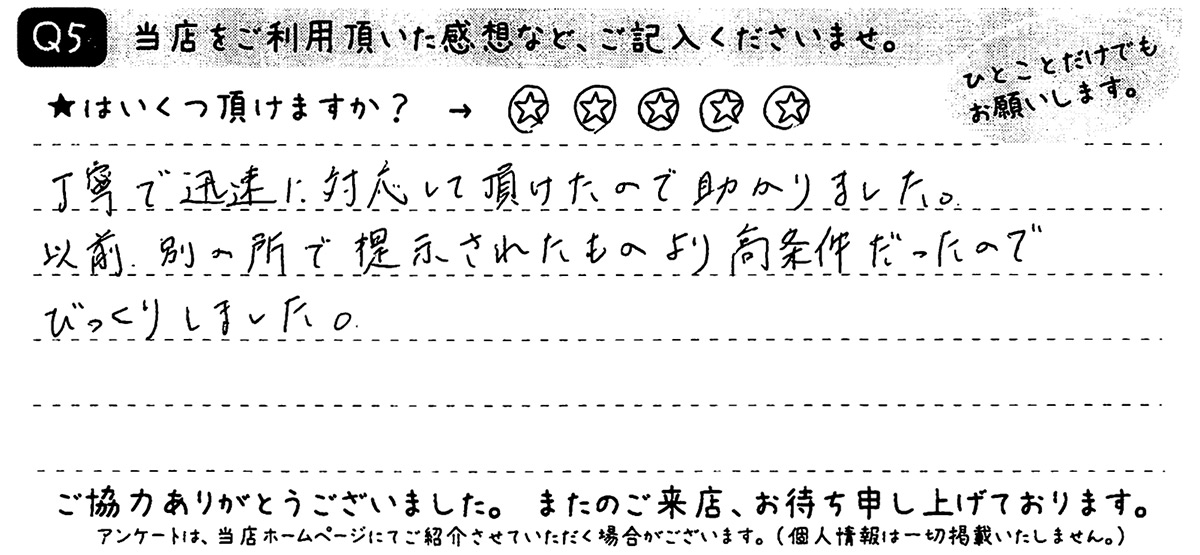 Q5 当店をご利用頂いた感想など、ご記入くださいませ。
ひとことだけでも
お願いします。
★はいくつ頂けますか? → ☆ ☆ ☆ ☆ ☆
丁寧で迅速に対応して頂けたので助かりました。
以前、別の所で提示されたものより高条件だったので
びっくりしました。
ご協力ありがとうございました。 またのご来店、お待ち申し上げております。
アンケートは、当店ホームページにてご紹介させていただく場合がございます。(個人情報は一切掲載いたしません。)